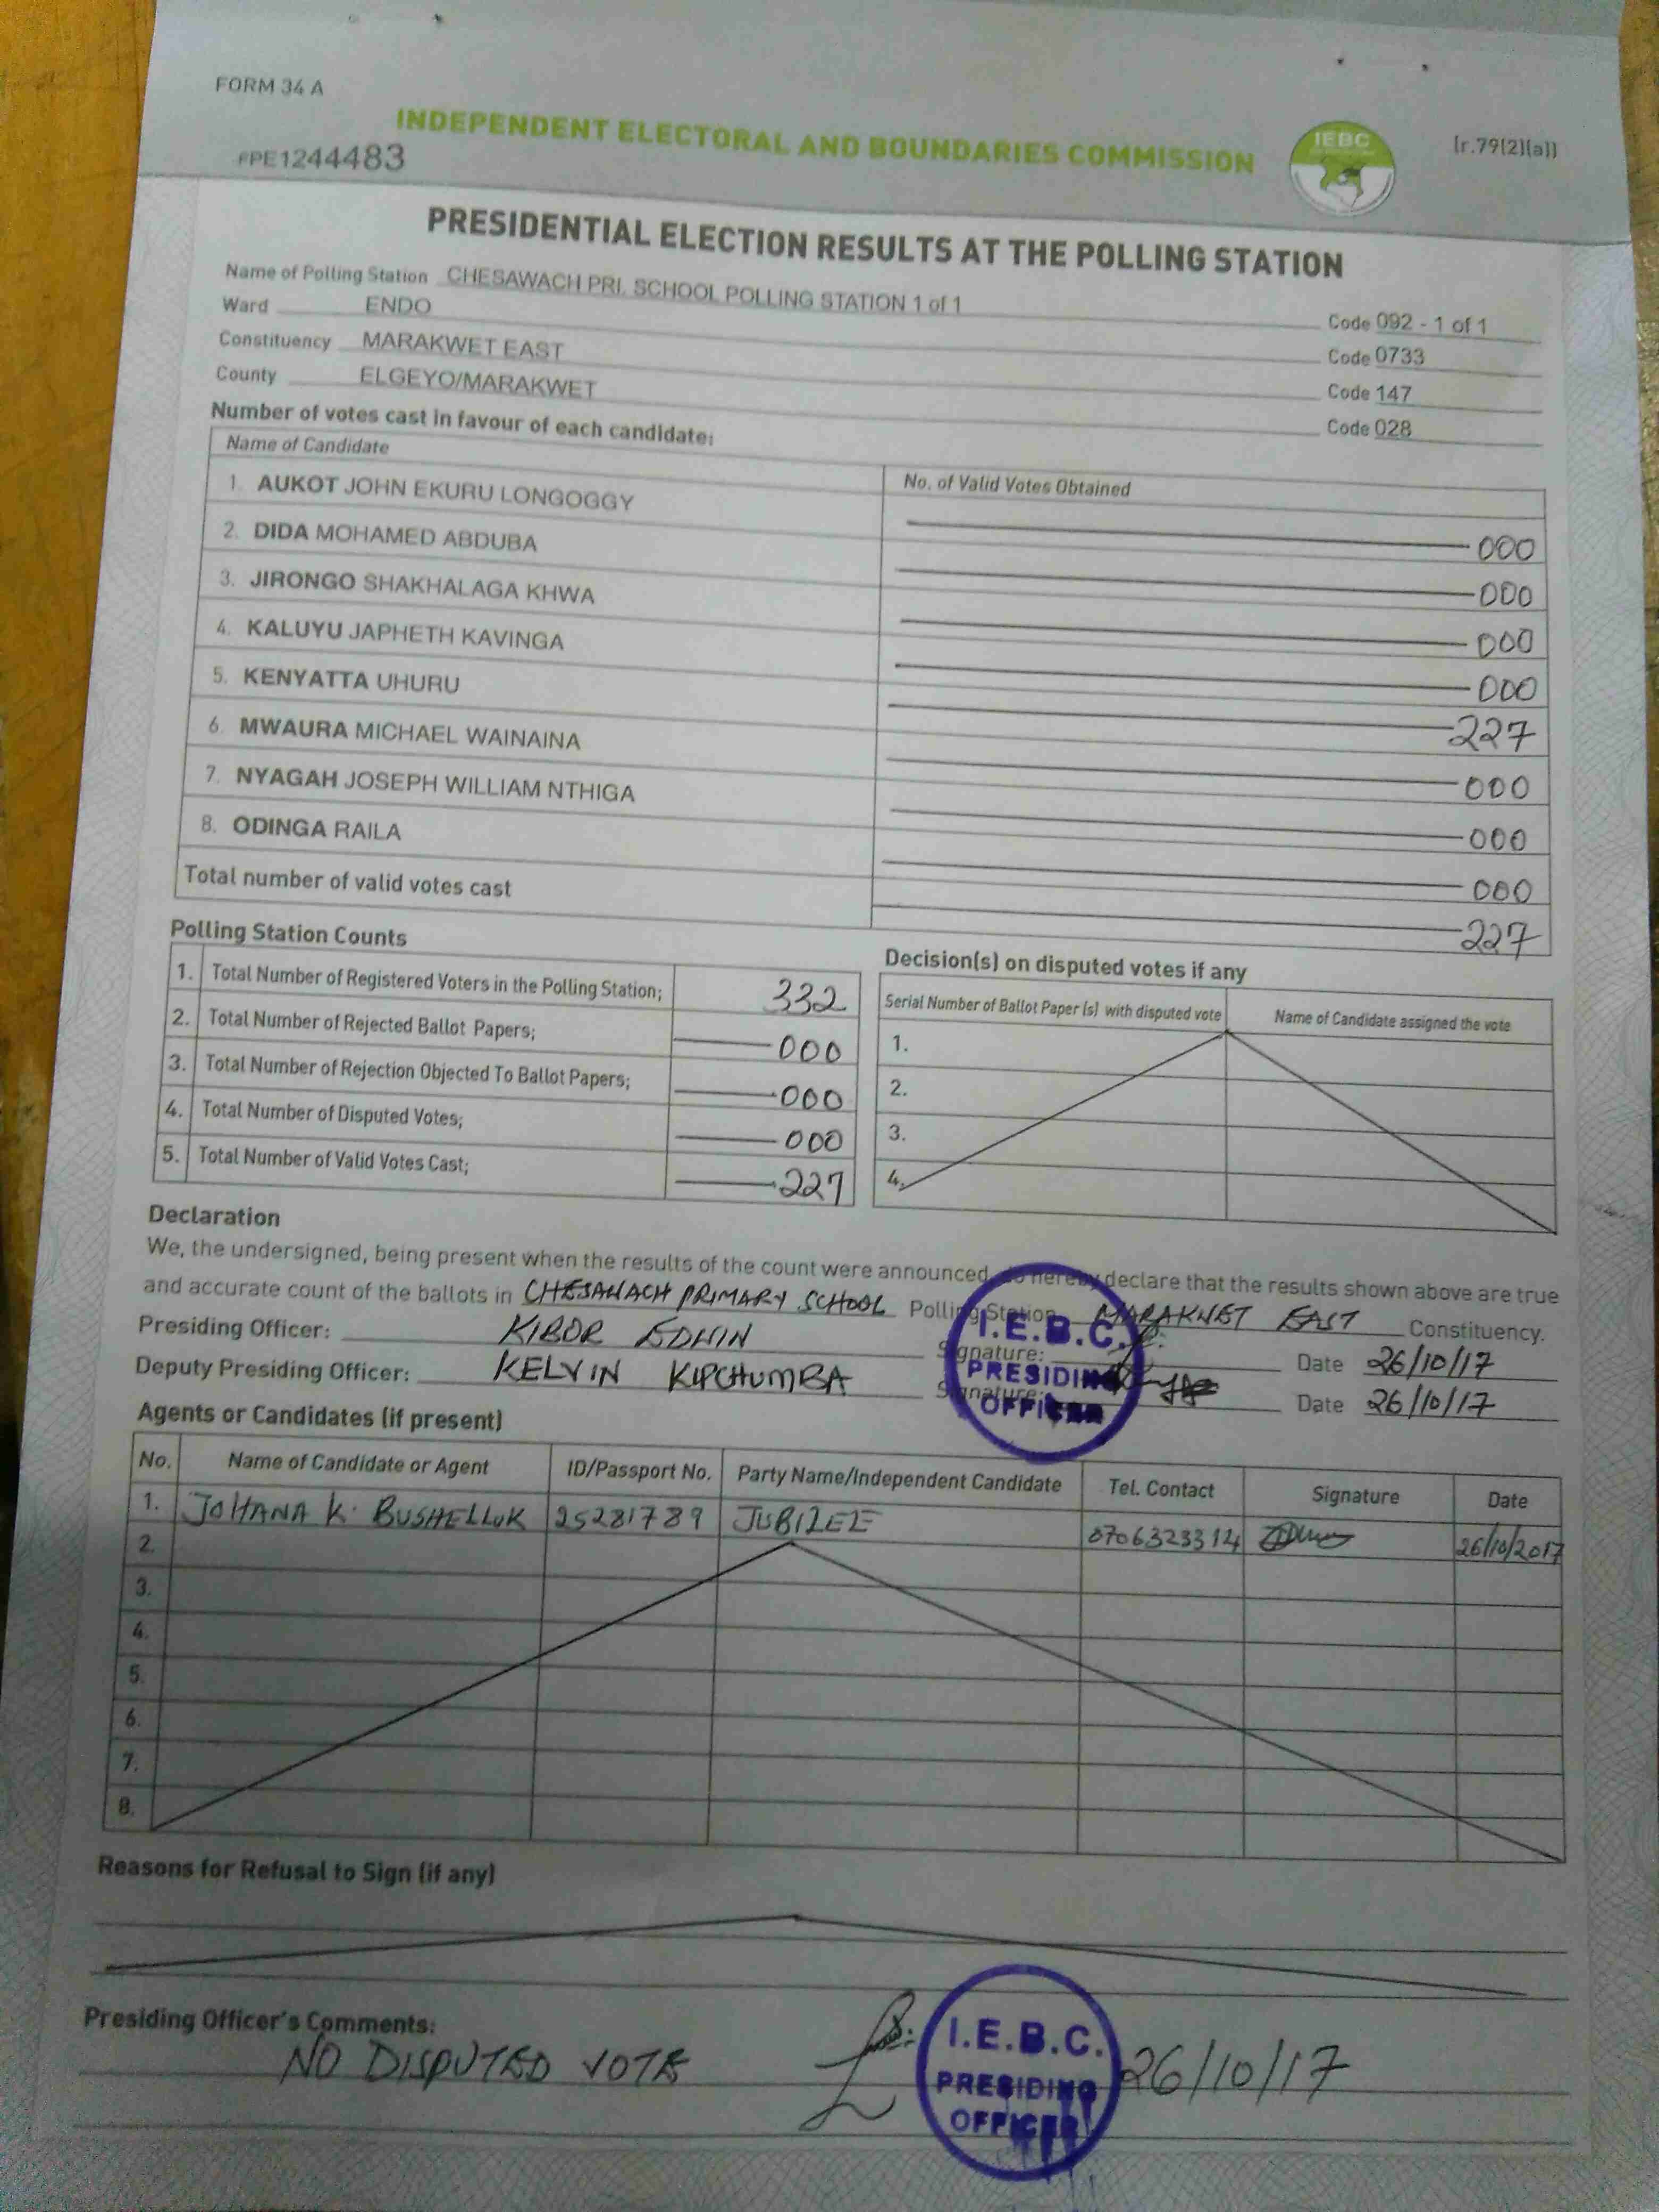 FORM 34 A
INDEPENDENT ELECTORAL AND BOUNDARIES COMMISSION
IEBC
(r.79(2)(a))
FPE1244483
PRESIDENTIAL ELECTION RESULTS AT THE POLLING STATION
Name of Polling Station CHESAWACH PRI. SCHOOL POLLING STATION 1 of 1 Code 092 - 1 of 1
Ward ENDO Code 0733
Constituency MARAKWET EAST Code 147
County ELGEYO/MARAKWET Code 028
Number of votes cast in favour of each candidate:
Name of Candidate No. of Valid Votes Obtained
1. AUKOT JOHN EKURU LONGOGGY 000
2. DIDA MOHAMED ABDUBA 000
3. JIRONGO SHAKHALAGA KHWA 000
4. KALUYU JAPHETH KAVINGA 000
5. KENYATTA UHURU 227
6. MWAURA MICHAEL WAINAINA 000
7. NYAGAH JOSEPH WILLIAM NTHIGA 000
8. ODINGA RAILA 000
Total number of valid votes cast 227
Polling Station Counts
1. Total Number of Registered Voters in the Polling Station; 332
2. Total Number of Rejected Ballot Papers; 000
3. Total Number of Rejection Objected To Ballot Papers; 000
4. Total Number of Disputed Votes; 000
5. Total Number of Valid Votes Cast; 227
Decision(s) on disputed votes if any
Serial Number of Ballot Paper (s) with disputed vote Name of Candidate assigned the vote
1.
2.
3.
4.
Declaration
We, the undersigned, being present when the results of the count were announced, do hereby declare that the results shown above are true
and accurate count of the ballots in CHESAWACH PRIMARY SCHOOL Polling Station MARAKWET EAST Constituency.
Presiding Officer: KIBOR EDWIN Signature: Date 26/10/17
Deputy Presiding Officer: KELVIN KIPCHUMBA Signature: Date 26/10/17
I.E.B.C.
PRESIDING
OFFICER
Agents or Candidates (if present)
No. Name of Candidate or Agent ID/Passport No. Party Name/Independent Candidate Tel. Contact Signature Date
1. JOHANA K. BUSHELLUK 25281789 JUBILEE 0706323314 26/10/2017
2.
3.
4.
5.
6.
7.
8.
Reasons for Refusal to Sign (if any)
Presiding Officer's Comments:
NO DISPUTED VOTE 26/10/17
I.E.B.C.
PRESIDING
OFFICER